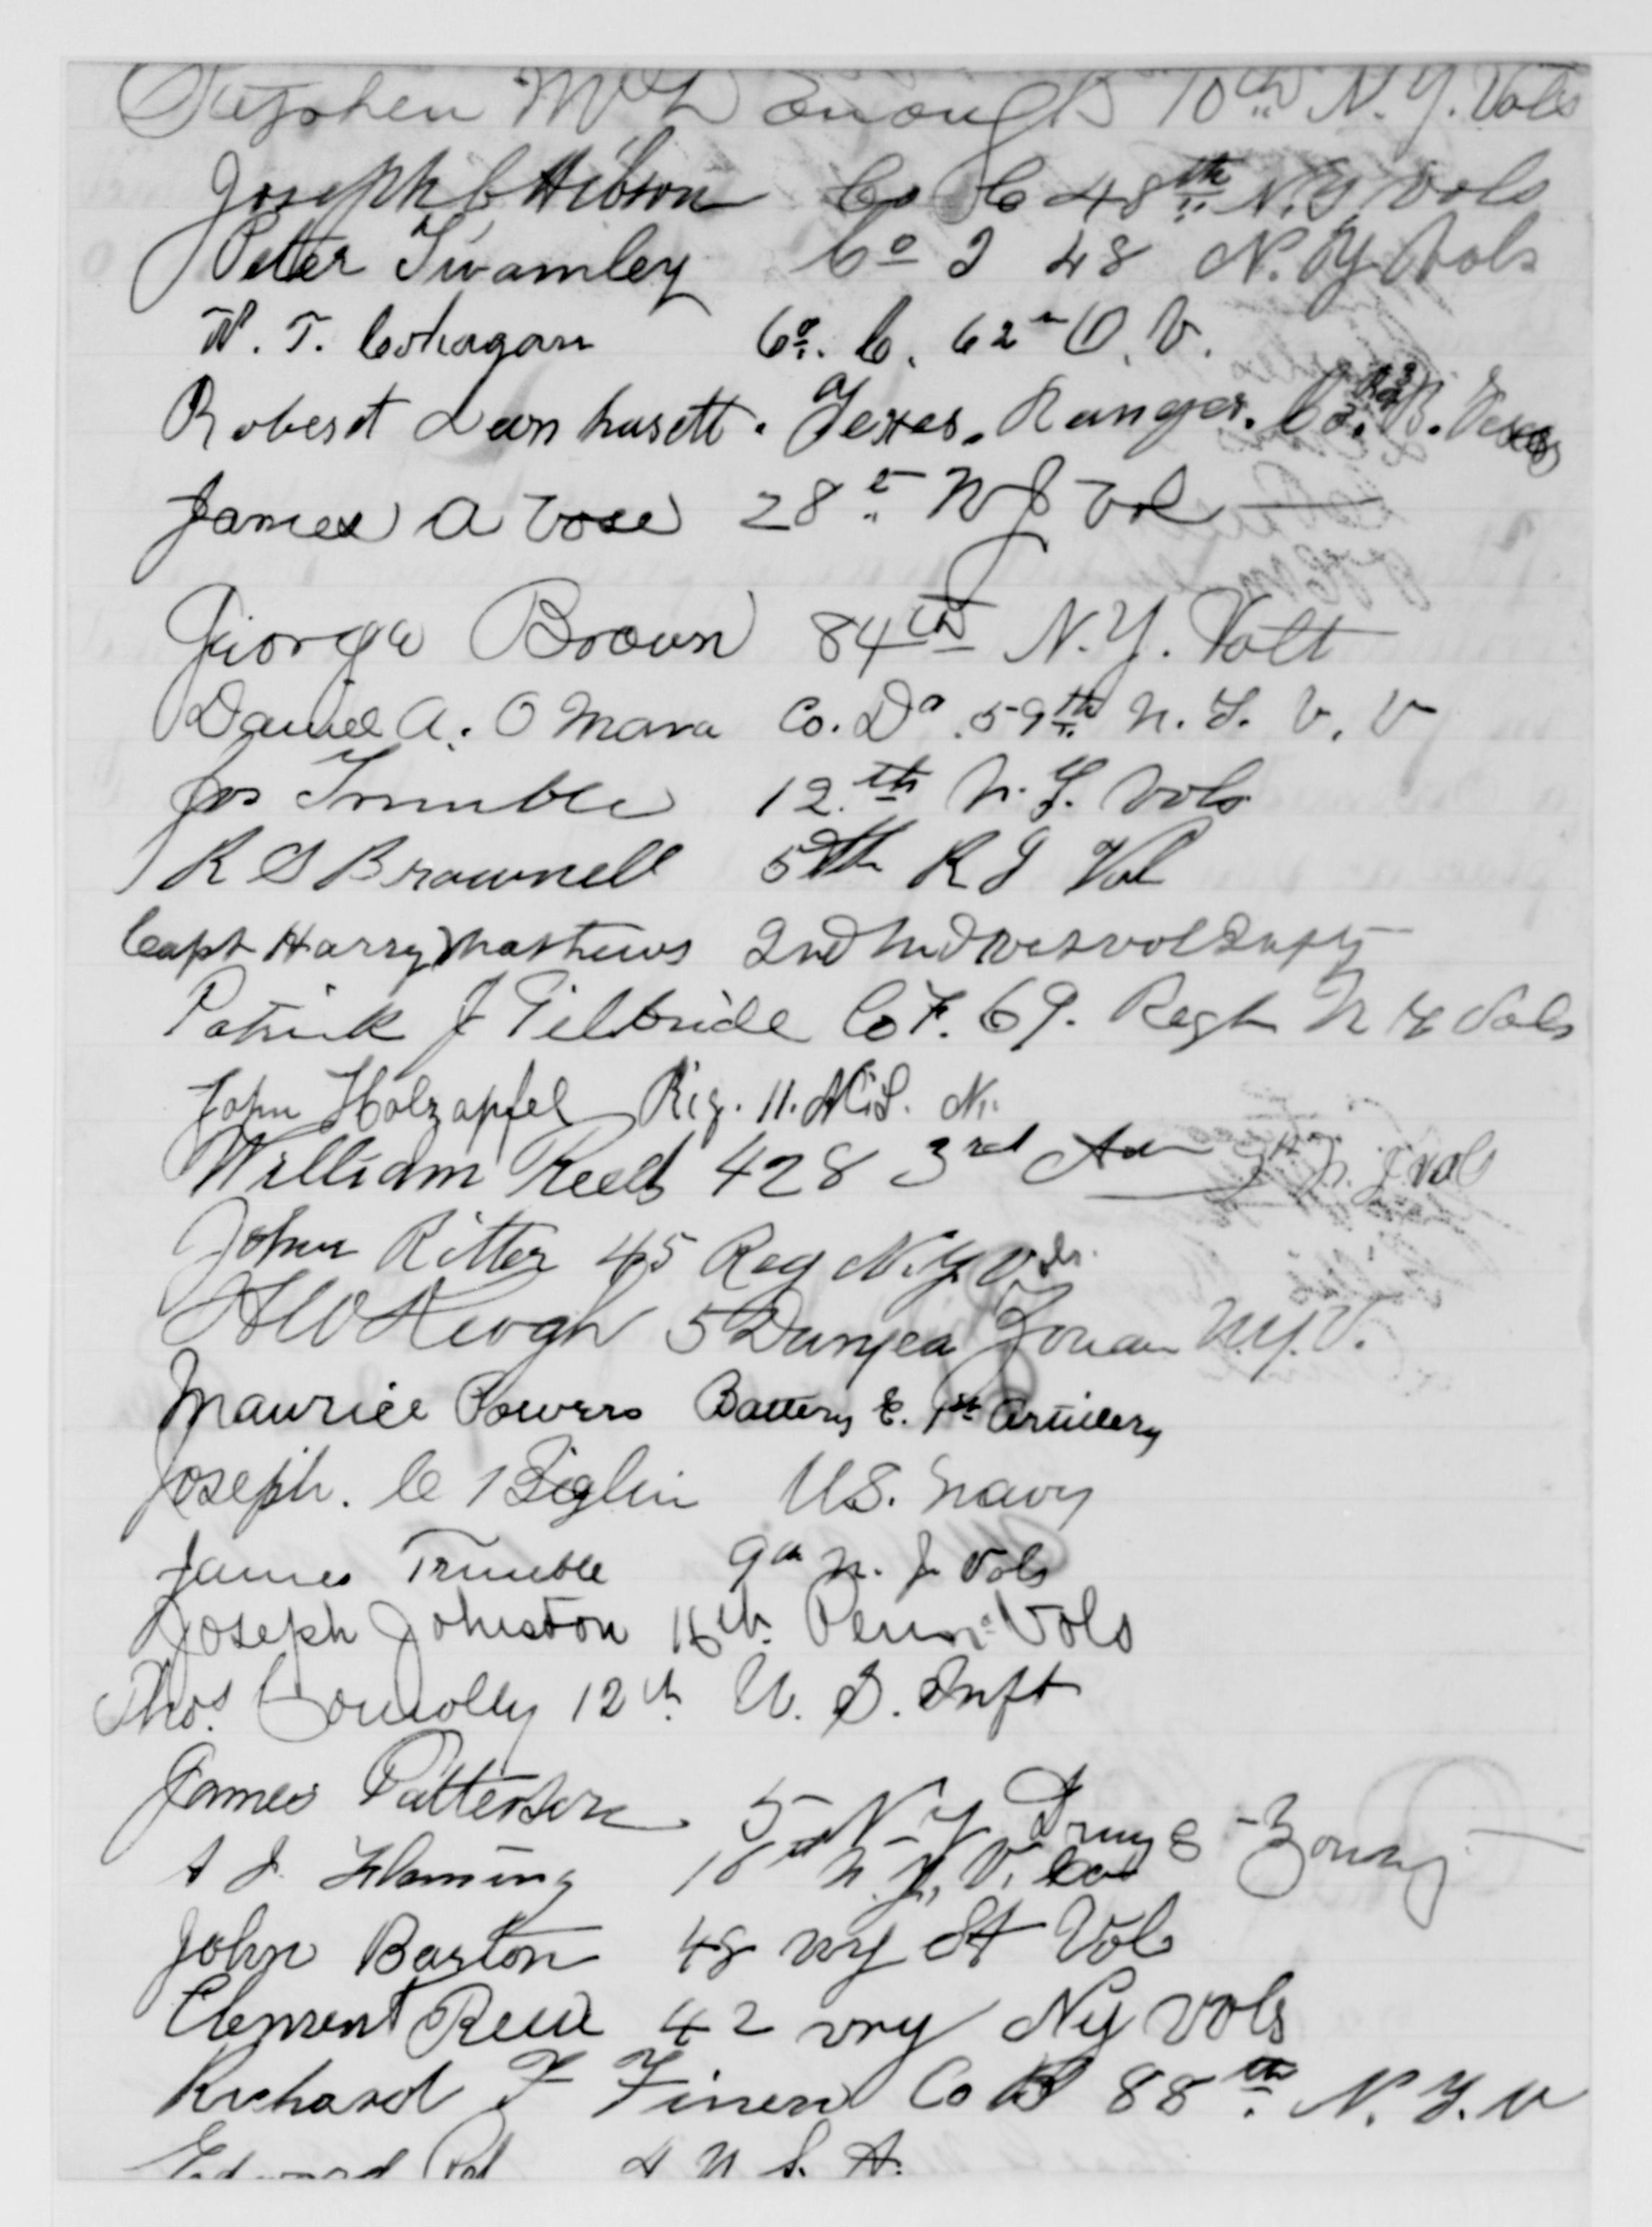 Stephen McDonough 10th N.Y. Vols
Joseph C Hibson Co C 48th N.Y Vols
Peter Twamley Co I 48 N.Y Vols
W. T. Cohagan Co. C. 62 O. V.
Robert Texes. Ranger. Co. B.
James A Vose 28th N J Vol
George Brown 84th N.Y. Volt
Daniel A. O Mara Co. D 59th N. Y. V. V
Jos Trimble 12th N. Y. Vols
R S Brownell 5th R I Vol
Capt Harry Mathews 2nd Md Vet Vol Infty
Patrick J Gilbride Co F. 69. Regt N Y Vols
John Holzapfel Rig. 11.
William Reed 428 3rd Ave N. J Vols
John Ritter 45 Reg N.Y. Vols.
Keogh 5 Duryea Zouav N.Y.V.
Maurice Powers Battery E. 1st Artillery
Joseph. C U S. Navy
James Trimble 9th N. J. Vols
Joseph Johnston 16th Penn Vols
Thos. Connolly 12th U. S. Inft
James Patterson 5 N Y
Fleming N. Y. V. Cav
John Barton 48 NY St Vol
Clement 42 NY Vols
Richard F Co B 88th N. Y. V
Edward U S. A.